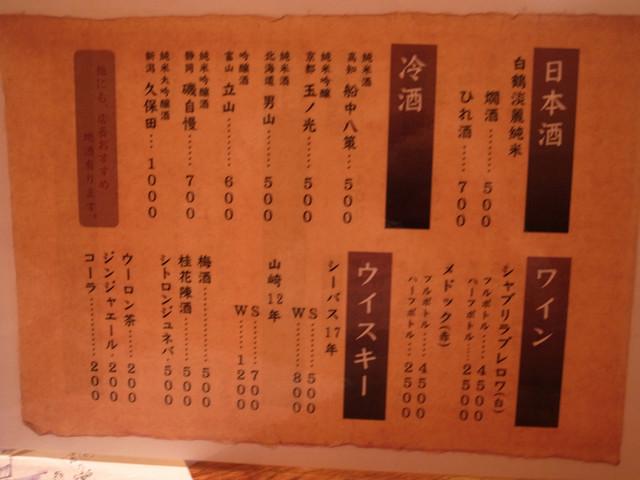 日本酒
白鶴淡麗純米
燗酒……500
ひれ酒……700
冷酒
純米酒
高知 船中八策…500
純米吟醸
京都 玉ノ光……500
純米酒
北海道 男山……500
吟醸酒
富山 立山………600
純米吟醸酒
静岡 磯自慢……700
純米大吟醸酒
新潟 久保田…1000
他にも、店長おすすめ
地酒有ります。
ワイン
シャブリラブレロワ(白)
フルボトル……4500
ハーフボトル…2500
メドック(赤)
フルボトル……4500
ハーフボトル…2500
ウイスキー
シーバス17年
S………500
W………800
山崎12年
S………700
W……1200
梅酒…………500
桂花陳酒……500
シトロンジュネバ・500
ウーロン茶……200
ジンジャエール・200
コーラ…………200